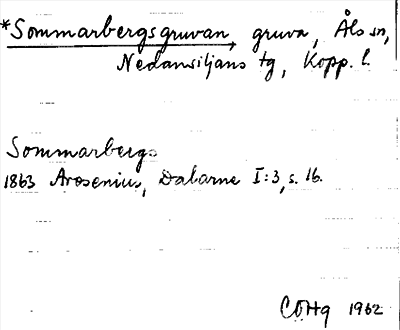 *Sommarbergsgruvan, gruva, Åls sn,
Nedansiljans tg, Kopp. l.
Sommarbergs
1863 Arosenius, Dalarne I:3, s. 16.
COHg 1962